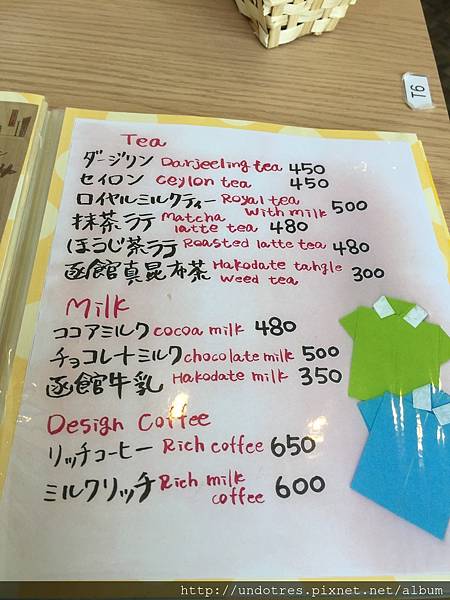 T6
Tea
ダージリン Darjeeling tea 450
セイロン Ceylon tea 450
ロイヤルミルクティー Royal tea with milk 500
抹茶ラテ Matcha latte tea 480
ほうじ茶ラテ Roasted latte tea 480
函館真昆布茶 Hakodate tangle weed tea 300
Milk
ココアミルク cocoa milk 480
チョコレートミルク chocolate milk 500
函館牛乳 Hakodate milk 350
Design Coffee
リッチコーヒー Rich coffee 650
ミルクリッチ Rich milk coffee 600
http://undotres.pixnet.net/album